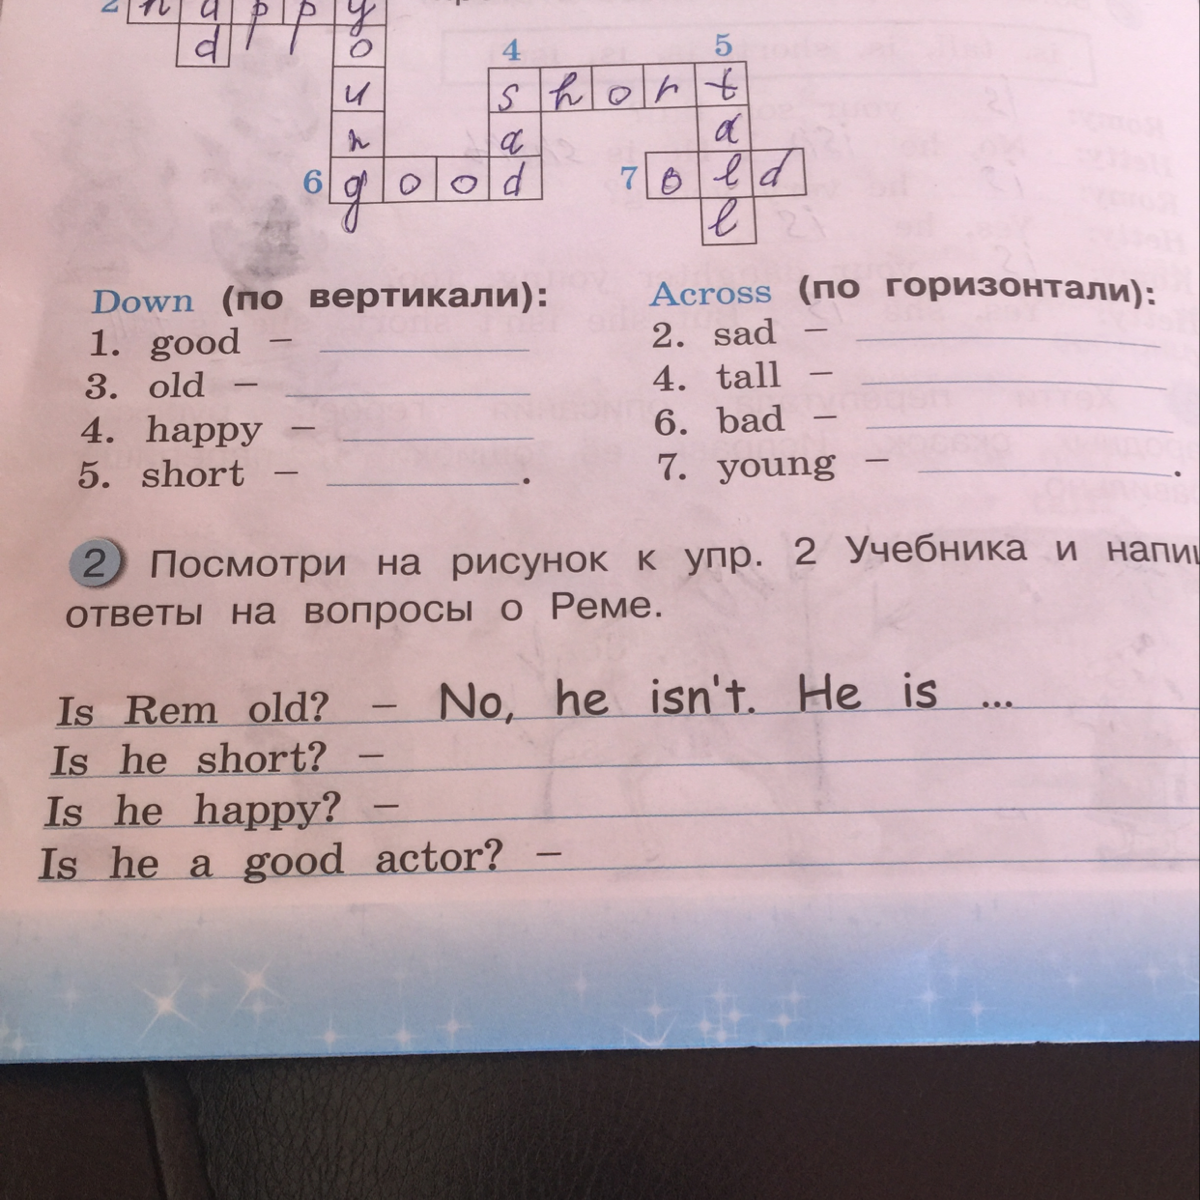 2 h a p p y
d o 4 5
u s h o r t
n a a
6 g o o d 7 o l d
l
Down (по вертикали): Across (по горизонтали):
1. good – 2. sad –
3. old – 4. tall –
4. happy – 6. bad –
5. short – . 7. young – .
2 Посмотри на рисунок к упр. 2 Учебника и напиш
ответы на вопросы о Реме.
Is Rem old? – No, he isn't. He is ...
Is he short? –
Is he happy? –
Is he a good actor? –